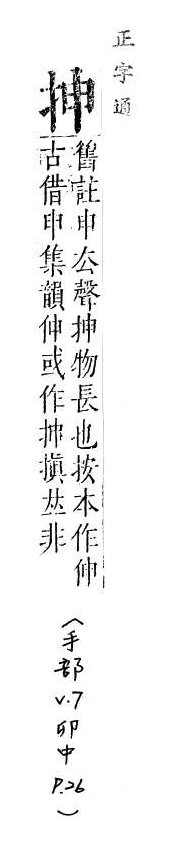 正字通
抻
舊註申去聲抻物長也按本作伸
古借申集韻伸或作抻㨋𠀤非
(手部 v.7 卯中 P.26)